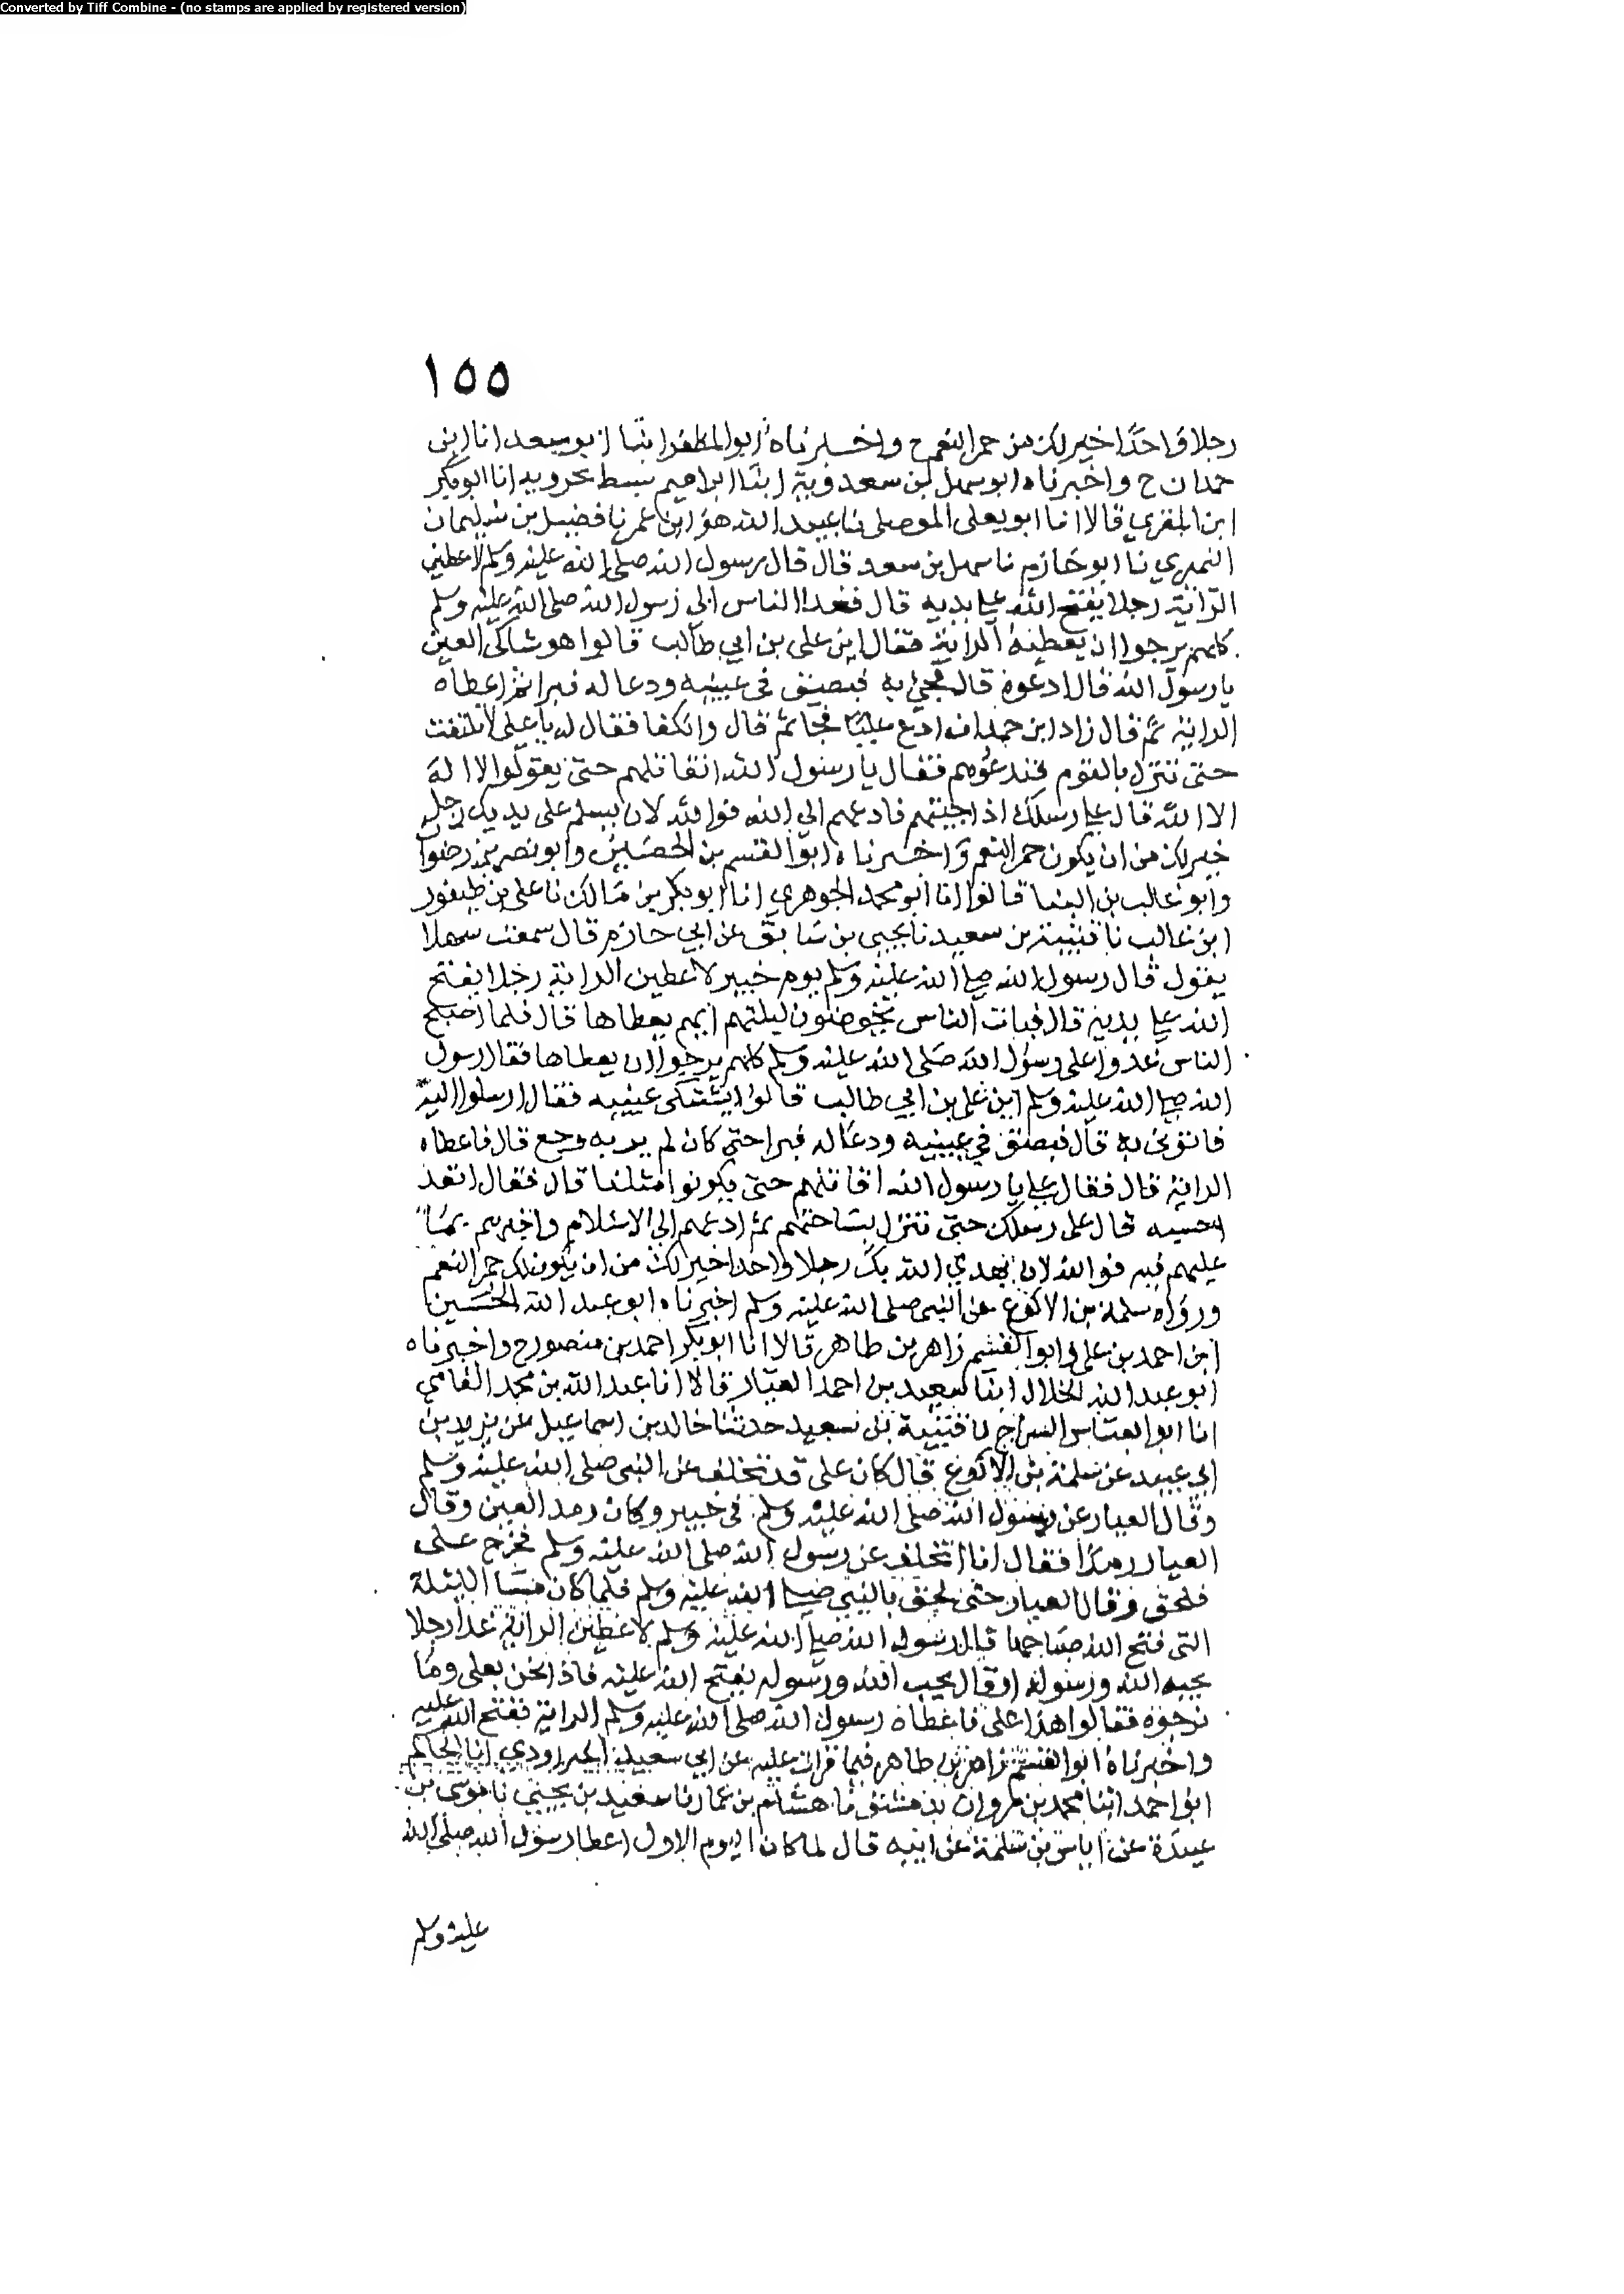 Converted by Tiff Combine - (no stamps are applied by registered version)
١٥٥
رجلا واحدا خير لك من حمر النعم ح واخبرناه ابو المظفر انبا ابو سعد انا ابن
حمدان ح واخبرناه ابو سهل بن سعدوية ابنا ابراهيم سبط بحرويه انا ابو بكر
ابن المقري قالا انا ابو يعلى الموصلى نا عبيد الله هو ابن عمر نا فضيل بن سليمان
النميري نا ابو حازم نا سهل بن سعد قال قال رسول الله صلى الله عليه وسلم لاعطين
الراية رجلا يفتح الله على يديه قال فغدا الناس الي رسول الله صلى الله عليه وسلم
كلهم يرجوا ان يعطيه الراية فقال اين على بن ابي طالب قالوا هو شاكى العين
يا رسول الله قال ادعوه قال فجئ به فبصق في عينيه ودعا له فبرا ثم اعطاه
الراية ثم قال زاد ابن حمدان ادع عليا فجا ثم قال وانكفا فقال له يا على لا تلتفت
حتى تنزل بالقوم فتدعوهم فقال يا رسول الله انقاتلهم حتى يقولوا لا اله
الا الله قال على رسلك اذا جيتهم فادعهم الي الله فوالله لان يسلم على يديك رجل
خير لك من ان يكون حمر النعم واخبرناه ابو القسم بن الحصين وابو نصر بن رضوان
وابو غالب بن البنا قالوا انا ابو محمد الجوهري انا ابو بكر بن مالك نا على بن طيفور
ابن غالب نا قتيبة بن سعيد نا يحيى بن سابق عن ابي حازم قال سمعت سهلا
يقول قال رسول الله صلى الله عليه وسلم يوم خيبر لاعطين الراية رجلا يفتح
الله على يديه قال فبات الناس يخوضون ليلتهم ايهم يعطاها قال فلما اصبح
الناس غدوا على رسول الله صلى الله عليه وسلم كلهم يرجوا ان يعطاها فقال رسول
الله صلى الله عليه وسلم اين على بن ابي طالب قالوا يشتكى عينيه فقال ارسلوا اليه
فاتو نى به قال فبصق في عينيه ودعا له فبرا حتى كان لم يد به وجع قال فاعطاه
الراية قال فقال على يا رسول الله اقاتلهم حتى يكونوا مثلنا قال فقال انفذ
قال على رسلك حتى تنزل بساحتهم ثم ادعهم الي الاسلام واخبرهم بما
عليهم فيه فوالله لان يهدي الله بك رجلا واحدا خير لك من ان يكون لك حمر النعم
ورواه سلمة بن الاكوع عن النبى صلى الله عليه وسلم اخبرناه ابو عبد الله الحسين
ابن احمد بن على وابو القسم زاهر بن طاهر قالا انا ابو بكر احمد بن منصور ح واخبرناه
ابو عبد الله الخلال ابنا سعيد بن احمد العيار قالا انا عبد الله بن محمد الفامي
انا ابو العباس السراج نا قتيبة بن سعيد حدثنا خالد بن اسماعيل عن يزيد بن
ابي عبيد عن سلمة بن الاكوع قال كان على قد تخلف عن النبى صلى الله عليه وسلم
وقال العيار عن رسول الله صلى الله عليه وسلم في خيبر وكان رمد العين وقال
العيار رمدا فقال انا اتخلف عن رسول الله صلى الله عليه وسلم فخرج على
فلحق وقال العيار حتى لحق بالنبى صلى الله عليه وسلم فلما كان مسا الليلة
التى فتح الله صباحها قال رسول الله صلى الله عليه وسلم لاعطين الراية غدا رجلا
يحبه الله ورسوله او قال يحب الله ورسوله يفتح الله عليه فاذا نحن بعلى وما
نرجوه فقالوا هذا على فاعطاه رسول الله صلى الله عليه وسلم الراية ففتح الله عليه
واخبرناه ابو القسم زاهر بن طاهر فيما قرات عليه عن ابي سعيد الجنزرودي انا الحاكم
ابو احمد ابنا محمد بن مروان بدمشق نا هشام بن عمار نا سعيد بن يحيى نا موسى بن
عبيدة عن اياس بن سلمة عن ابيه قال لما كان اليوم الاول اعطا رسول الله صلى الله
عليه وسلم